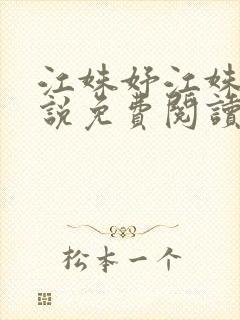 江妹妤江妹
說免費閱讀
松本一个